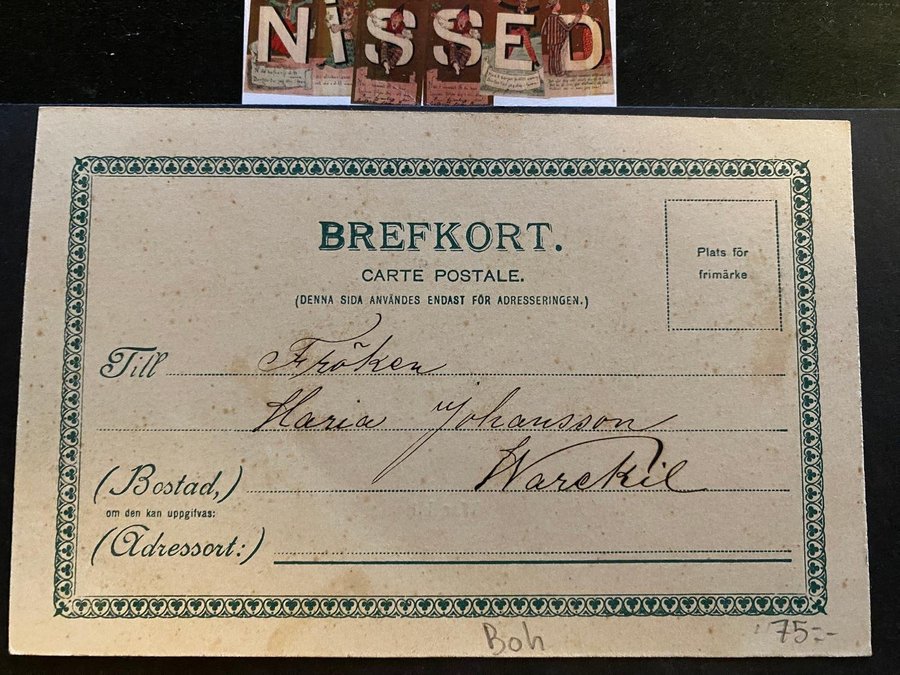 NISSED
BREFKORT.
CARTE POSTALE.
(DENNA SIDA ANVÄNDES ENDAST FÖR ADRESSERINGEN.)
Plats för
frimärke
Till Fröken
Maria Johansson
(Bostad,) Warekil
om den kan uppgifvas:
(Adressort:)
Boh 75:-